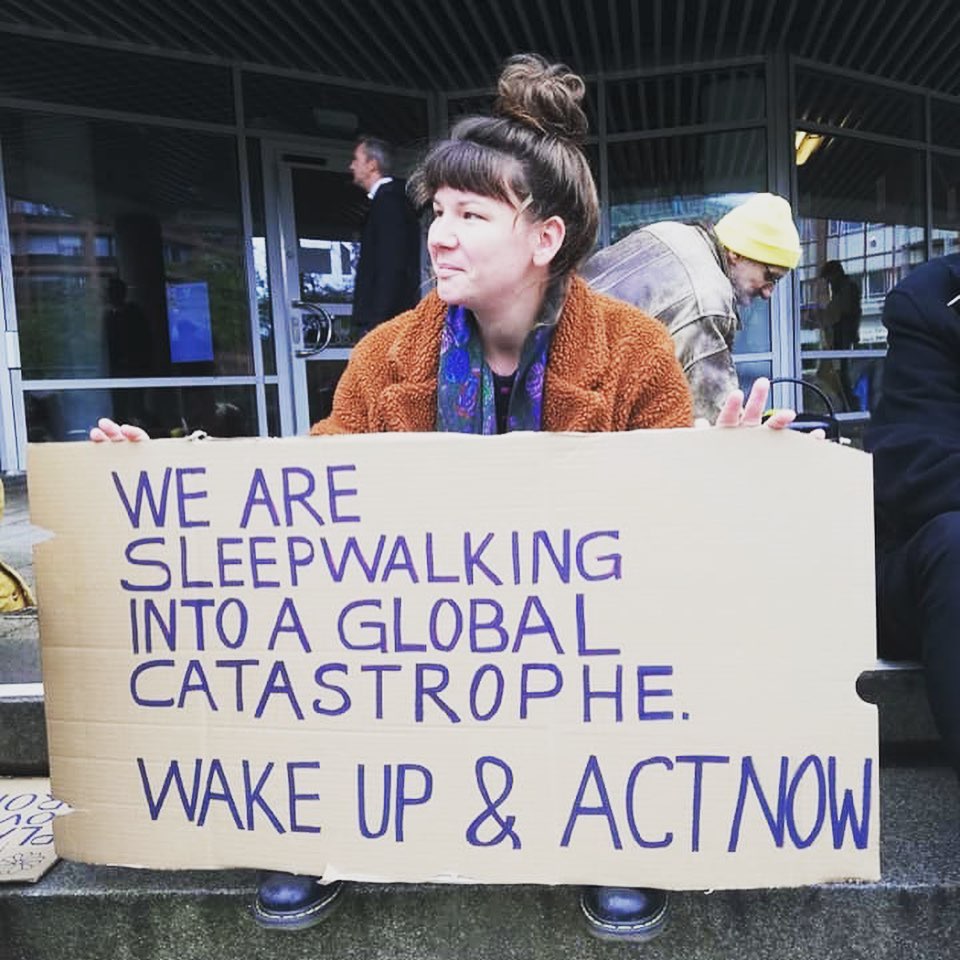 WE ARE
SLEEPWALKING
INTO A GLOBAL
CATASTROPHE.
WAKE UP & ACT NOW